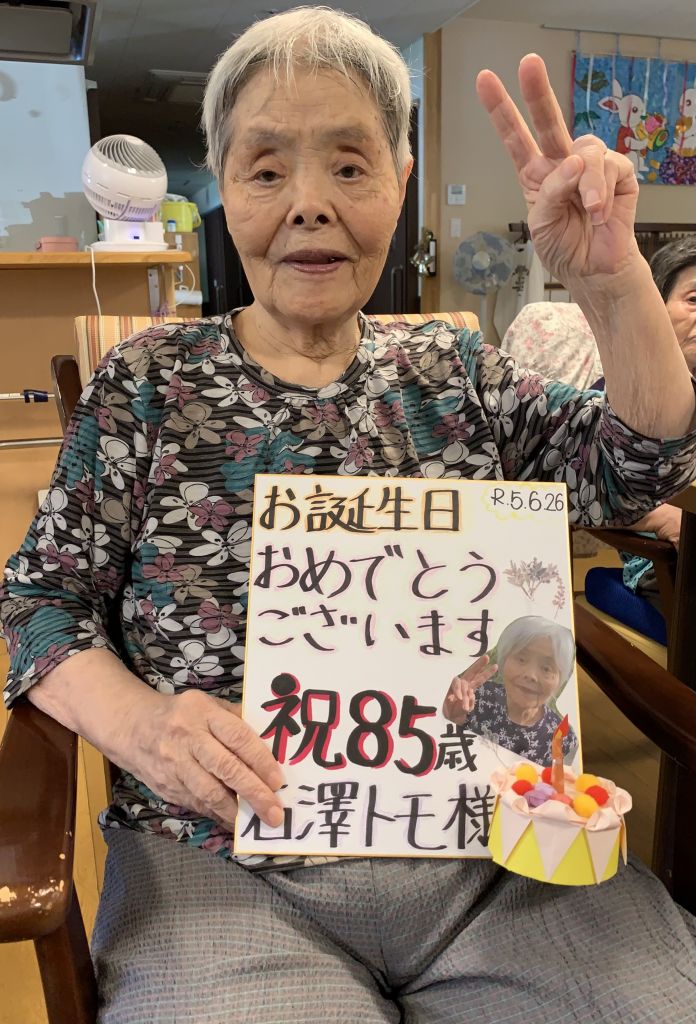 お誕生日
R.5.6.26
おめでとう
ございます
祝85歳
石澤トモ様